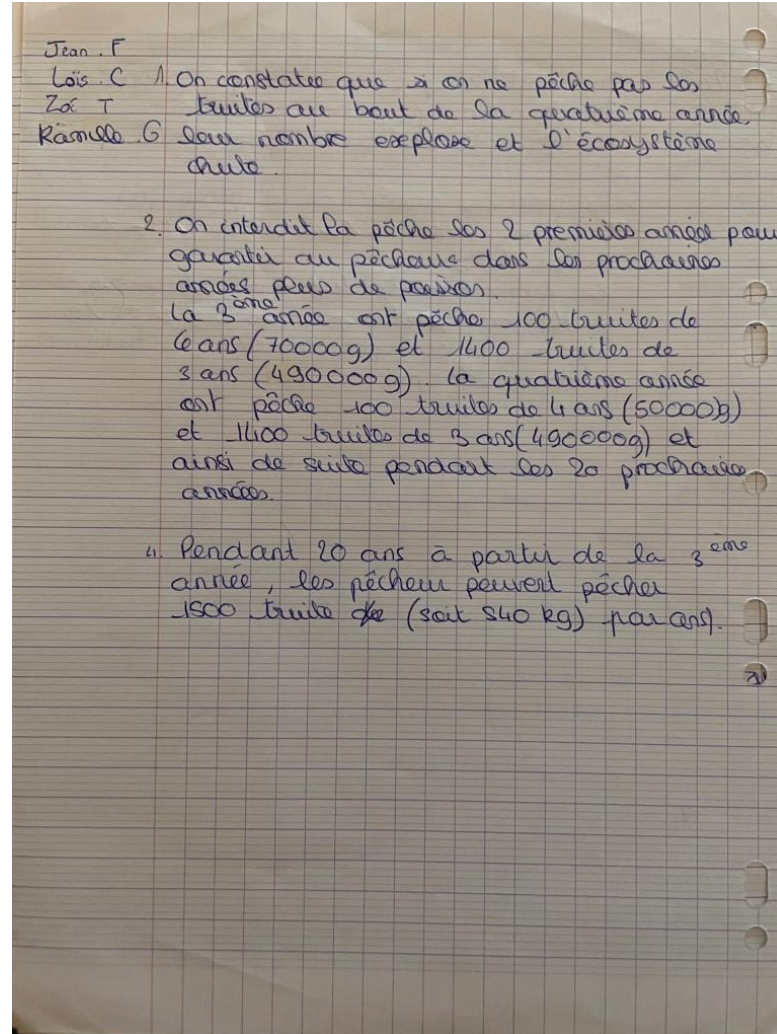 Jean . F
Loïs . C 1. On constate que si on ne pêche pas les
Zoé T truites au bout de la quatrième année,
Kamille . G leur nombre explose et l'écosystème
chute.
2. On interdit la pêche les 2 premières année pour
garantir au pêcheur dans les prochaines
années plus de poissons.
la 3ème année ont pêche 100 truites de
ans (70000g) et 1400 truites de
3 ans (490000g). la quatrième année
ont pêche 100 truites de 4 ans (50000g)
et 1400 truites de 3 ans (490000g) et
ainsi de suite pendant les 20 prochaine
années.
4. Pendant 20 ans à partir de la 3ème
année, les pêcheur peuvent pêcher
1500 truite (soit 540 kg) par ans).